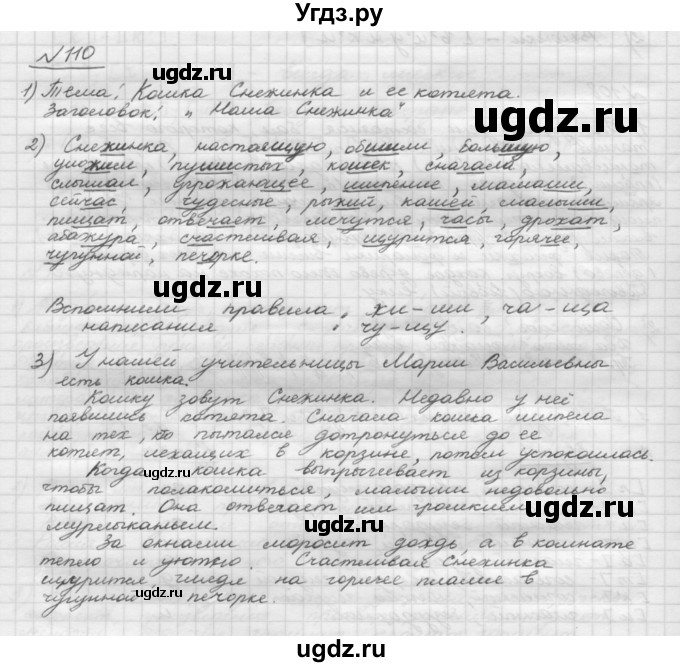 Угдз.ру
№110
1) Тема: Кошка Снежинка и ее котята.
Заголовок: „Наша Снежинка"
ugdz.ru
ugdz.ru
2) Снежинка, настоящую, обшили, большую,
уложим, пушистых, кошек, сначала,
слышал, угрожающее, шипение, мамаши,
сейчас, чудесные, рыжий, кашей, малыши,
пищат, отвечает, мечутся, часы, дрожат,
абажура, счастливая, щурится, горячее,
чугунной, печорке.
ugdz.ru
ugdz.ru
Вспомнили правила: жи-ши, ча-ща
написания чу-щу.
ugdz.ru
3) У нашей учительницы Марии Васильевны
есть кошка.
Кошку зовут Снежинка. Недавно у ней
появились котята. Сначала кошка шипела
на тех, кто пытался дотронуться до ее
котят, лежащих в корзине, потом успокоилась.
Когда кошка выпрыгивает из корзины,
чтобы полакомиться, малыши недовольно
пищат. Она отвечает им громким
мурлыканьем.
ugdz.ru
ugdz.ru
ugdz.ru
За окнами моросит дождь, а в комнате
тепло и уютно. Счастливая Снежинка
щурится на горячее пламя в
чугунной печорке.
ugdz.ru
ugdz.ru
ugdz.ru